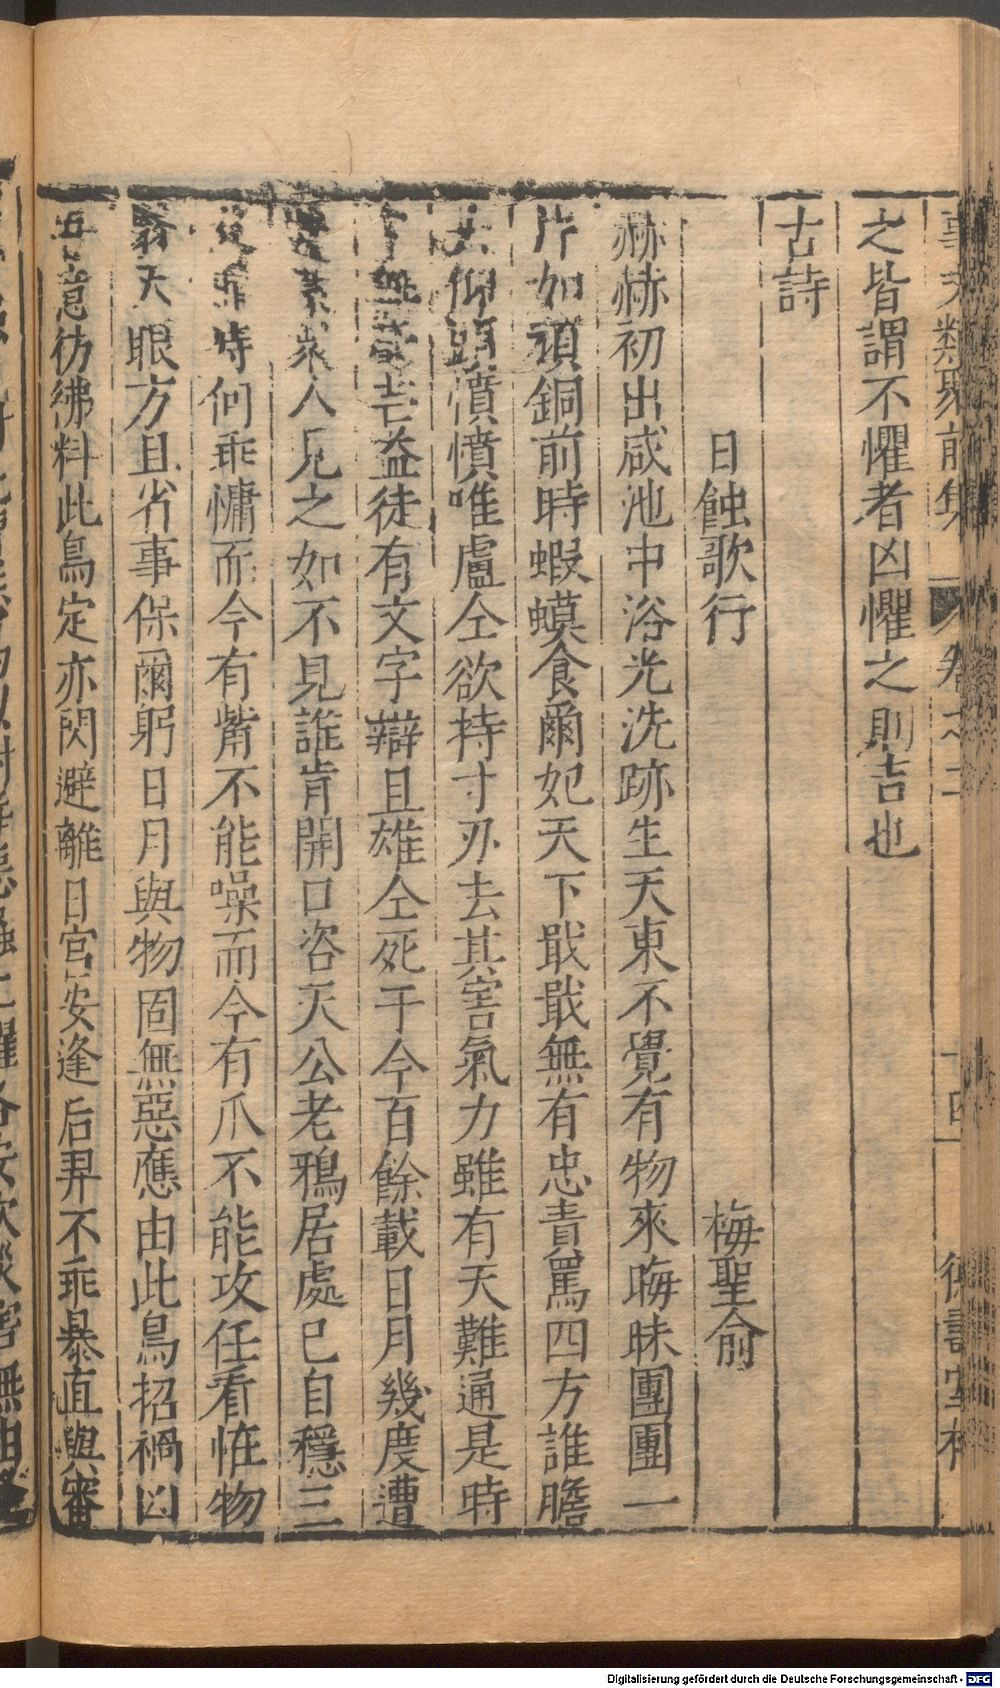 類聚前集 卷之二
之皆謂不懼者凶懼之則吉也
古詩
日蝕歌行 梅聖俞
赫赫初出咸池中浴光洗跡生天東不覺有物來晦昧團團一
片如頑銅前時蝦蟆食爾妃天下戢戢無有忠責罵四方誰膽
仰頭憤憤唯盧仝欲持寸刃去其害氣力雖有天難通是時
芒益徒有文字辯且雄仝死于今百餘載日月幾度遭
人見之如不見誰肯開口咨天公老鴉居處已自穩三
時何乖慵而今有觜不能噪而今有爪不能攻任看恠物
翁天眼方且省事保爾躬日月與物固無惡應由此鳥招禍凶
吾意彷彿料此鳥定亦閃避離日宮安逢后羿不乖暴直與審
Digitalisierung gefördert durch die Deutsche Forschungsgemeinschaft - DFG